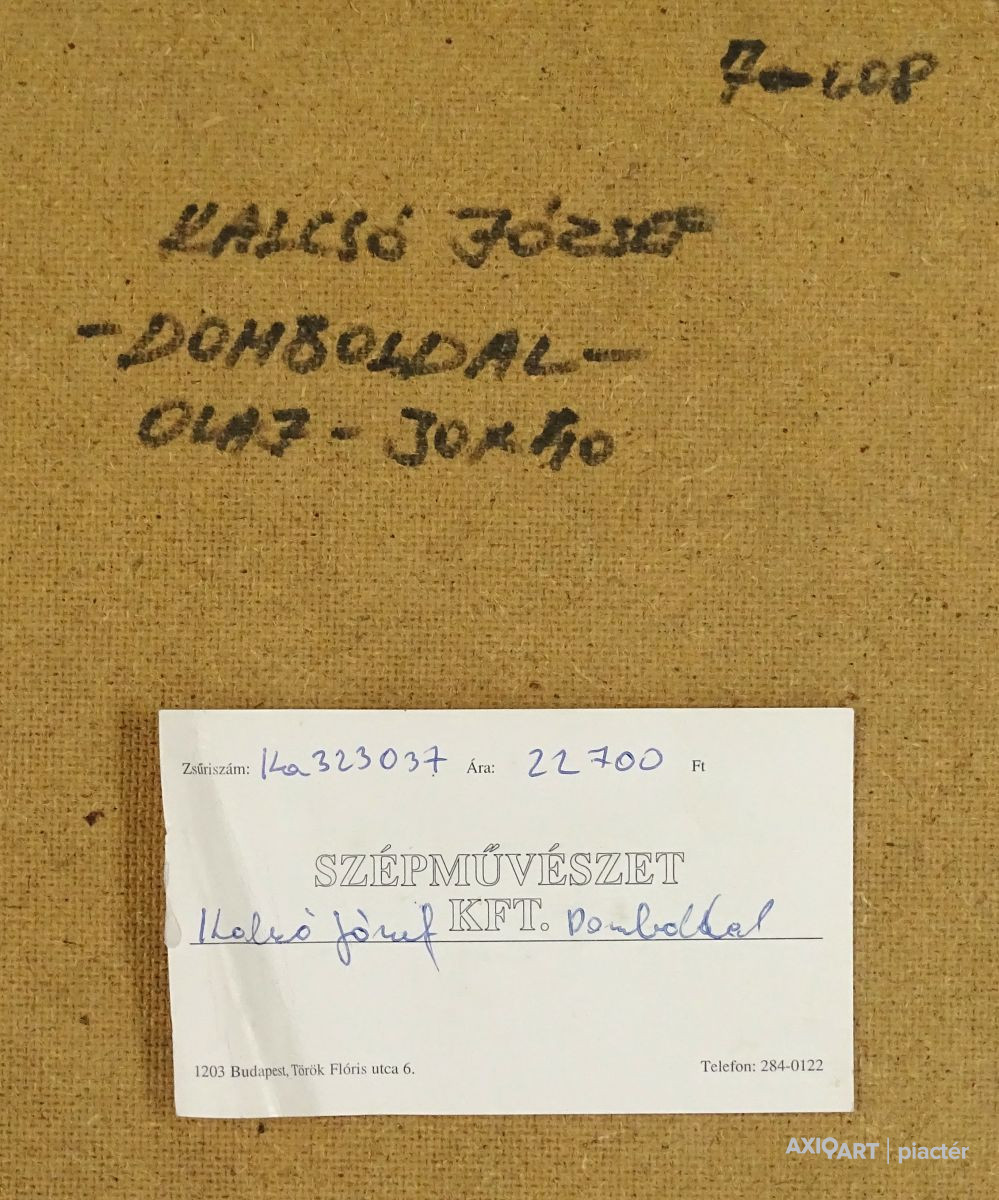 7-608
KALCSÓ JÓZSEF
-DOMBOLDAL-
OLAJ - 30x40
Zsűriszám: Ka323037 Ára: 22 700 Ft
SZÉPMŰVÉSZET
KFT.
Kalcsó József Domboldal
1203 Budapest, Török Flóris utca 6. Telefon: 284-0122
AXIOART | piactér